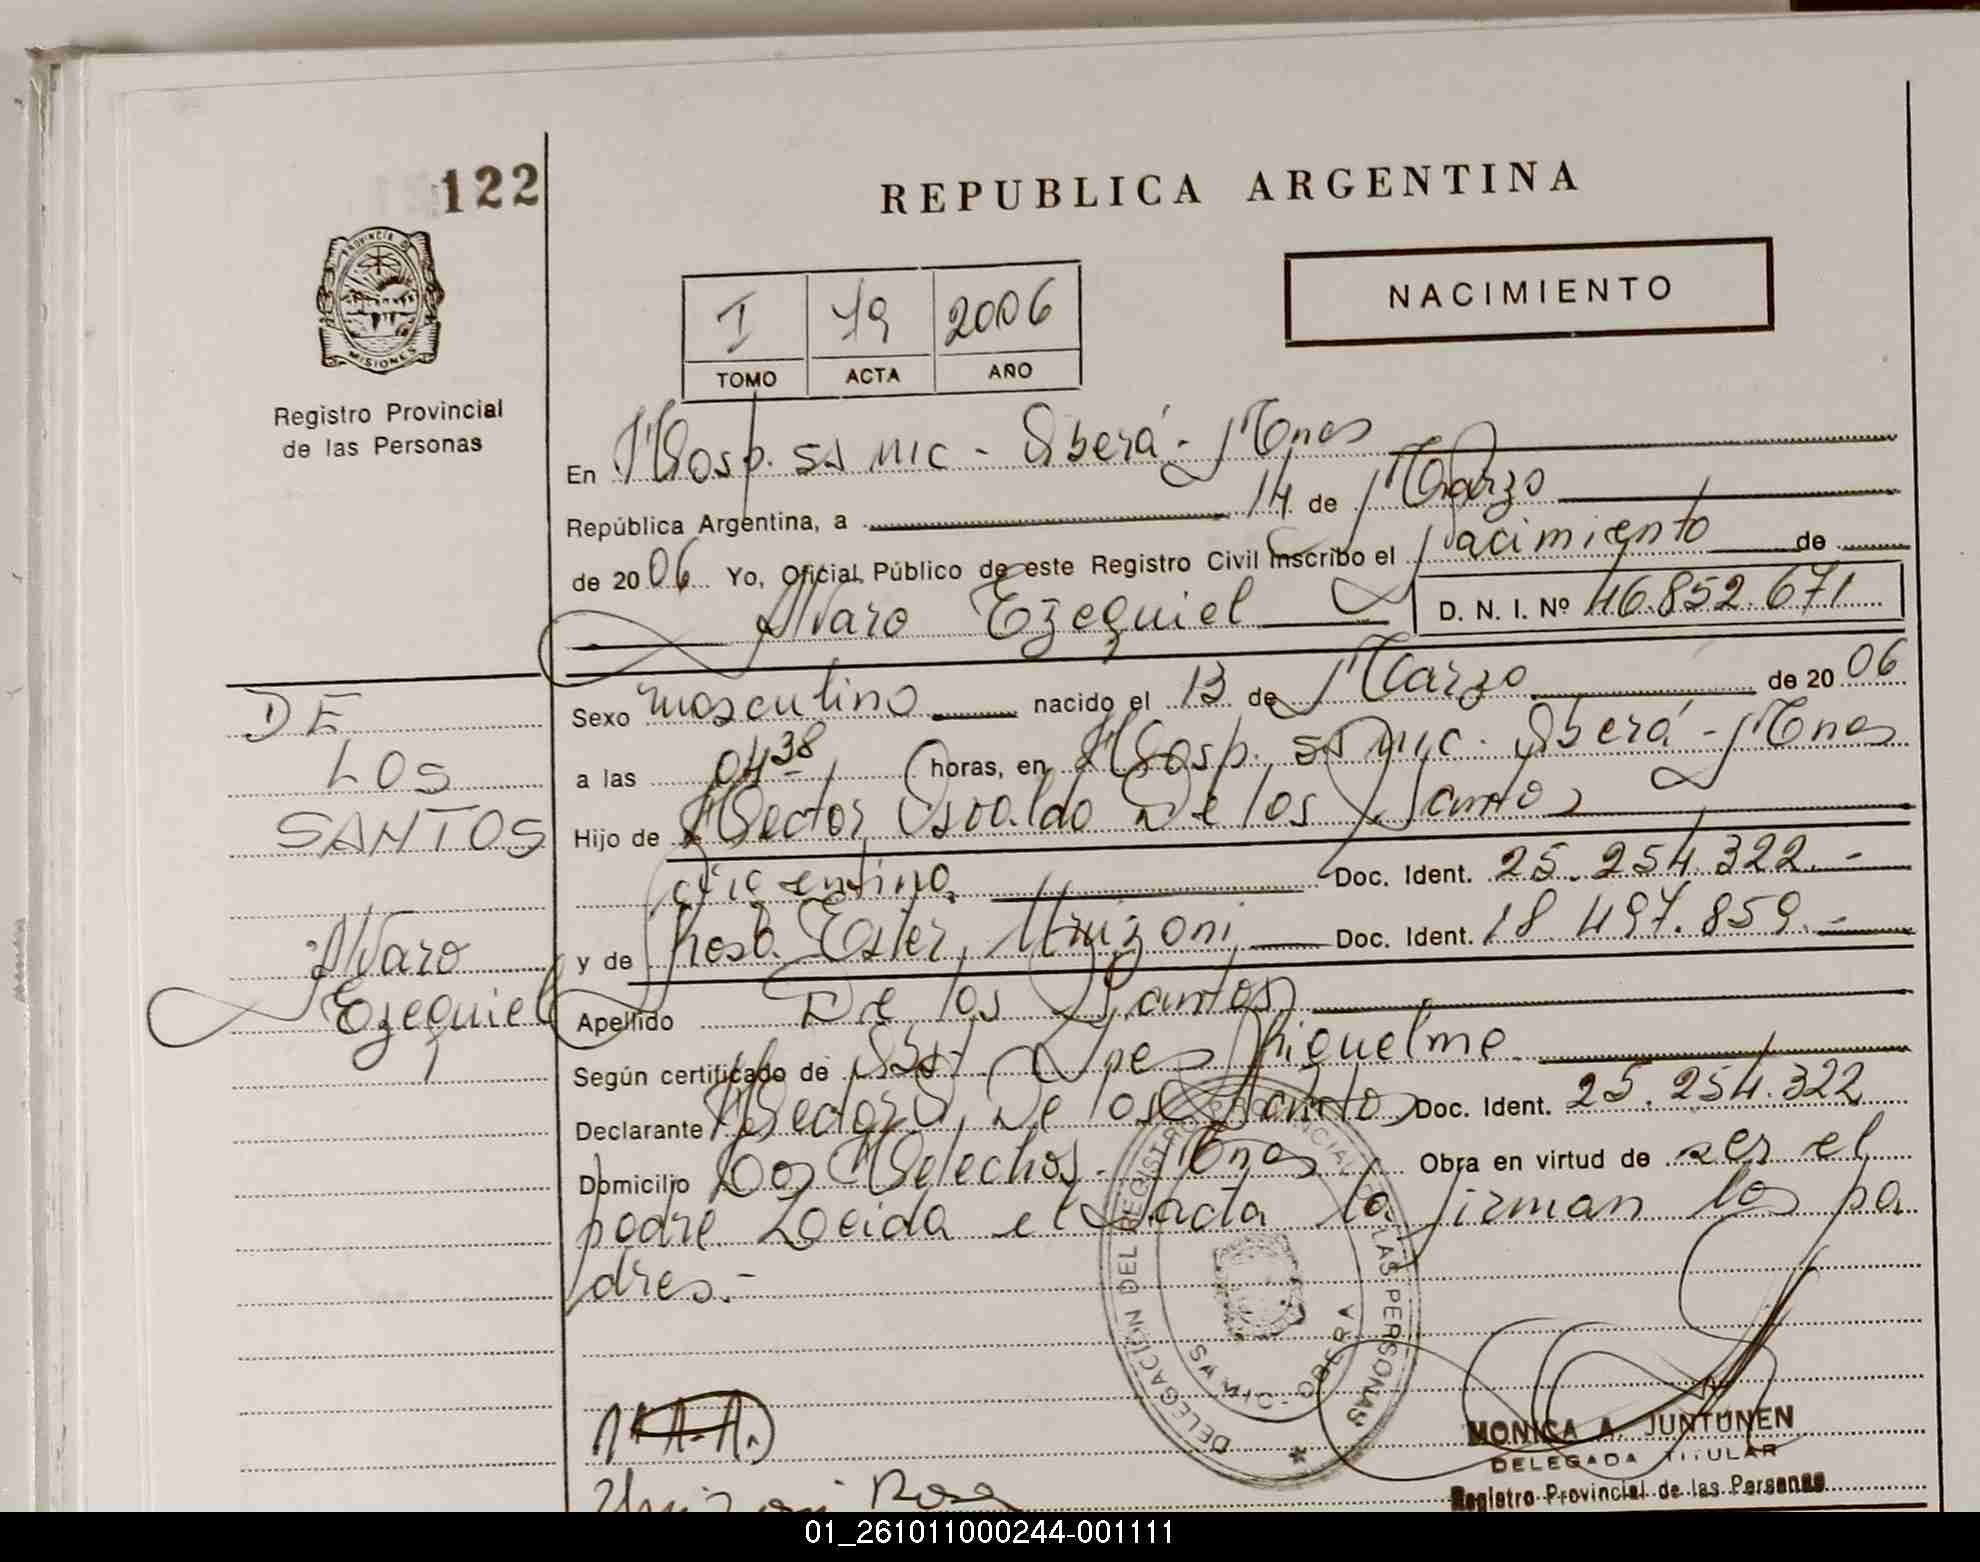 122
REPUBLICA ARGENTINA
PROVINCIA DE
MISIONES
Registro Provincial
de las Personas
NACIMIENTO
I 79 2006
TOMO ACTA AÑO
En Hosp. SS MIC - Oberá - Mnes
República Argentina, a 14 de Marzo
de 2006 Yo, Oficial Público de este Registro Civil Inscribo el Nacimiento de
Alvaro Ezequiel D. N. I. Nº 46.852.671
DE
LOS
SANTOS
Alvaro
Ezequiel
Sexo masculino nacido el 13 de Marzo de 2006
a las 04 38 horas, en Hosp. SS MIC. Oberá - Mnes
Hijo de Hector Osvaldo De los Santos
argentino Doc. Ident. 25.254.322.-
y de Rosa Ester Doc. Ident. 18.497.859.-
Apellido De los Santos
Según certificado de Obst. Riquelme
Declarante Hector O. De los Santos Doc. Ident. 25.254.322
Domicilio Los Helechos. Mnes Obra en virtud de ser el
padre Leida el acta la firman los pa
dres.-
DELEGACIÓN DEL REGISTRO PROVINCIAL DE LAS PERSONAS
OBERA
MONICA A. JUNTUNEN
DELEGADA TITULAR
Registro Provincial de las Personas
Rosa
01_261011000244-001111